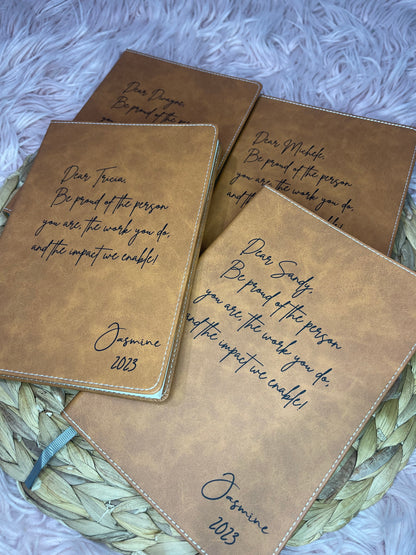 Dear Dwayne,
Be proud of the person
Dear Michele,
Be proud of the person
you are, the work you do,
Dear Tricia,
Be proud of the person
you are, the work you do,
and the impact we enable!
Jasmine
2023
Dear Sandy,
Be proud of the person
you are, the work you do,
and the impact we enable!
Jasmine
2023